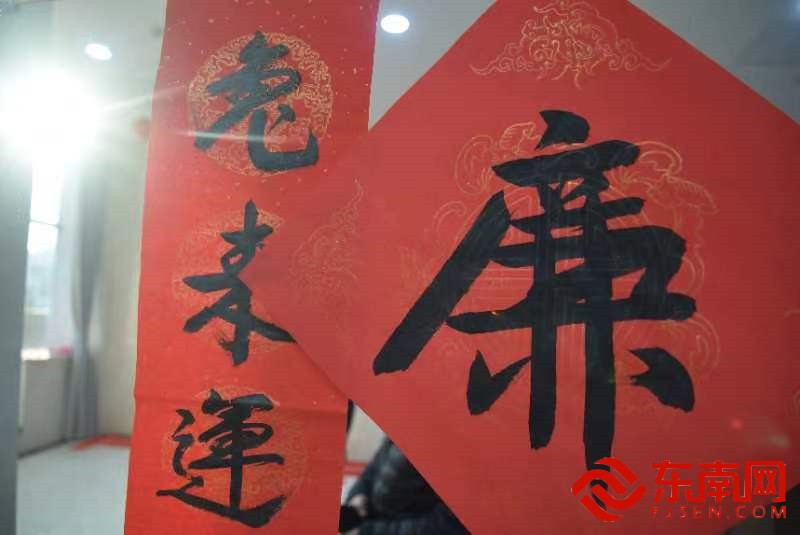 兔来運
廉
东南网
FJSEN.COM